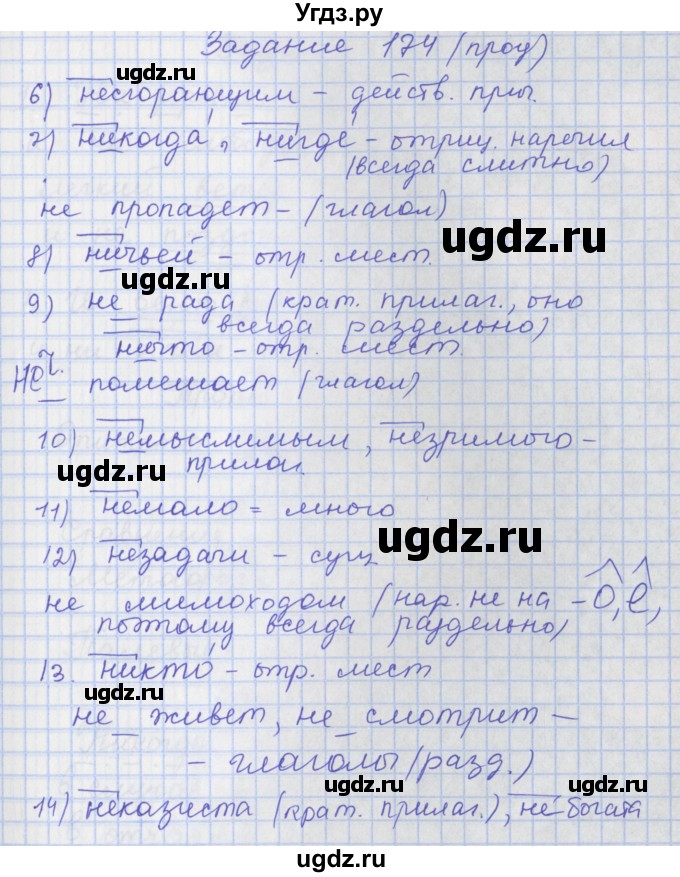 Угдз.ру
Задание 174 (прод)
6) несгорающим – действ. прич.
7) никогда, нигде – отриц. наречия
(всегда слитно)
не пропадет – (глагол)
8) ничьей – отр. мест.
9) не рада (крат. прилаг., оно
всегда раздельно)
ничто – отр. мест.
не помешает (глагол)
10) немыслимым, незримого –
прилаг.
11) немало = много
12) незадачи – сущ
не мимоходом (нар. не на -о, е,
поэтому всегда раздельно)
13. никто – отр. мест
не живет, не смотрит –
– глаголы (разд.)
14) неказиста (крат. прилаг.), небогата
ugdz.ru
ugdz.ru
ugdz.ru
ugdz.ru
ugdz.ru
ugdz.ru
ugdz.ru
ugdz.ru
ugdz.ru
ugdz.ru
ugdz.ru
ugdz.ru
ugdz.ru
ugdz.ru